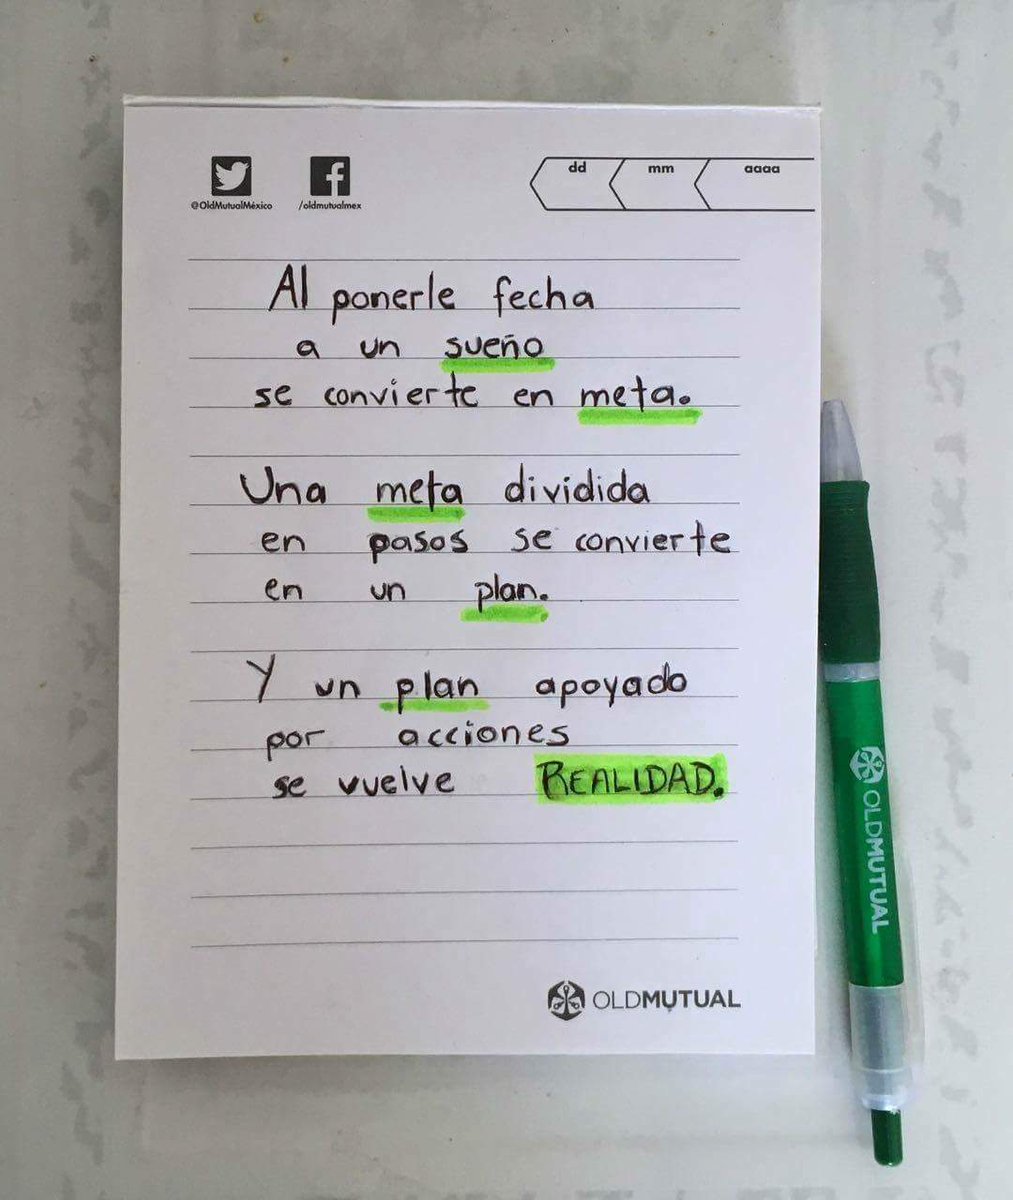 @OldMutualMéxico
/oldmutualmex
dd mm aaaa
Al ponerle fecha
a un sueño
se convierte en meta.
Una meta dividida
en pasos se convierte
en un plan.
Y un plan apoyado
por acciones
se vuelve REALIDAD.
OLDMUTUAL
OLDMUTUAL